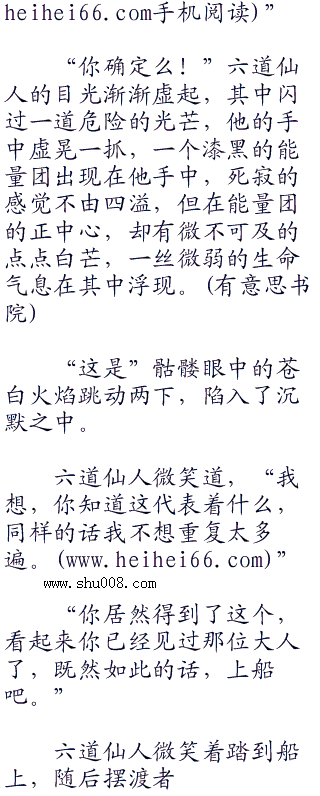 heihei66.com手机阅读)”
“你确定么！”六道仙
人的目光渐渐虚起，其中闪
过一道危险的光芒，他的手
中虚晃一抓，一个漆黑的能
量团出现在他手中，死寂的
感觉不由四溢，但在能量团
的正中心，却有微不可及的
点点白芒，一丝微弱的生命
气息在其中浮现。(有意思书
院)
“这是”骷髅眼中的苍
白火焰跳动两下，陷入了沉
默之中。
六道仙人微笑道，“我
想，你知道这代表着什么，
同样的话我不想重复太多
遍。(www.heihei66.com)”
www.shu008.com
“你居然得到了这个，
看起来你已经见过那位大人
了，既然如此的话，上船
吧。”
六道仙人微笑着踏到船
上，随后摆渡者